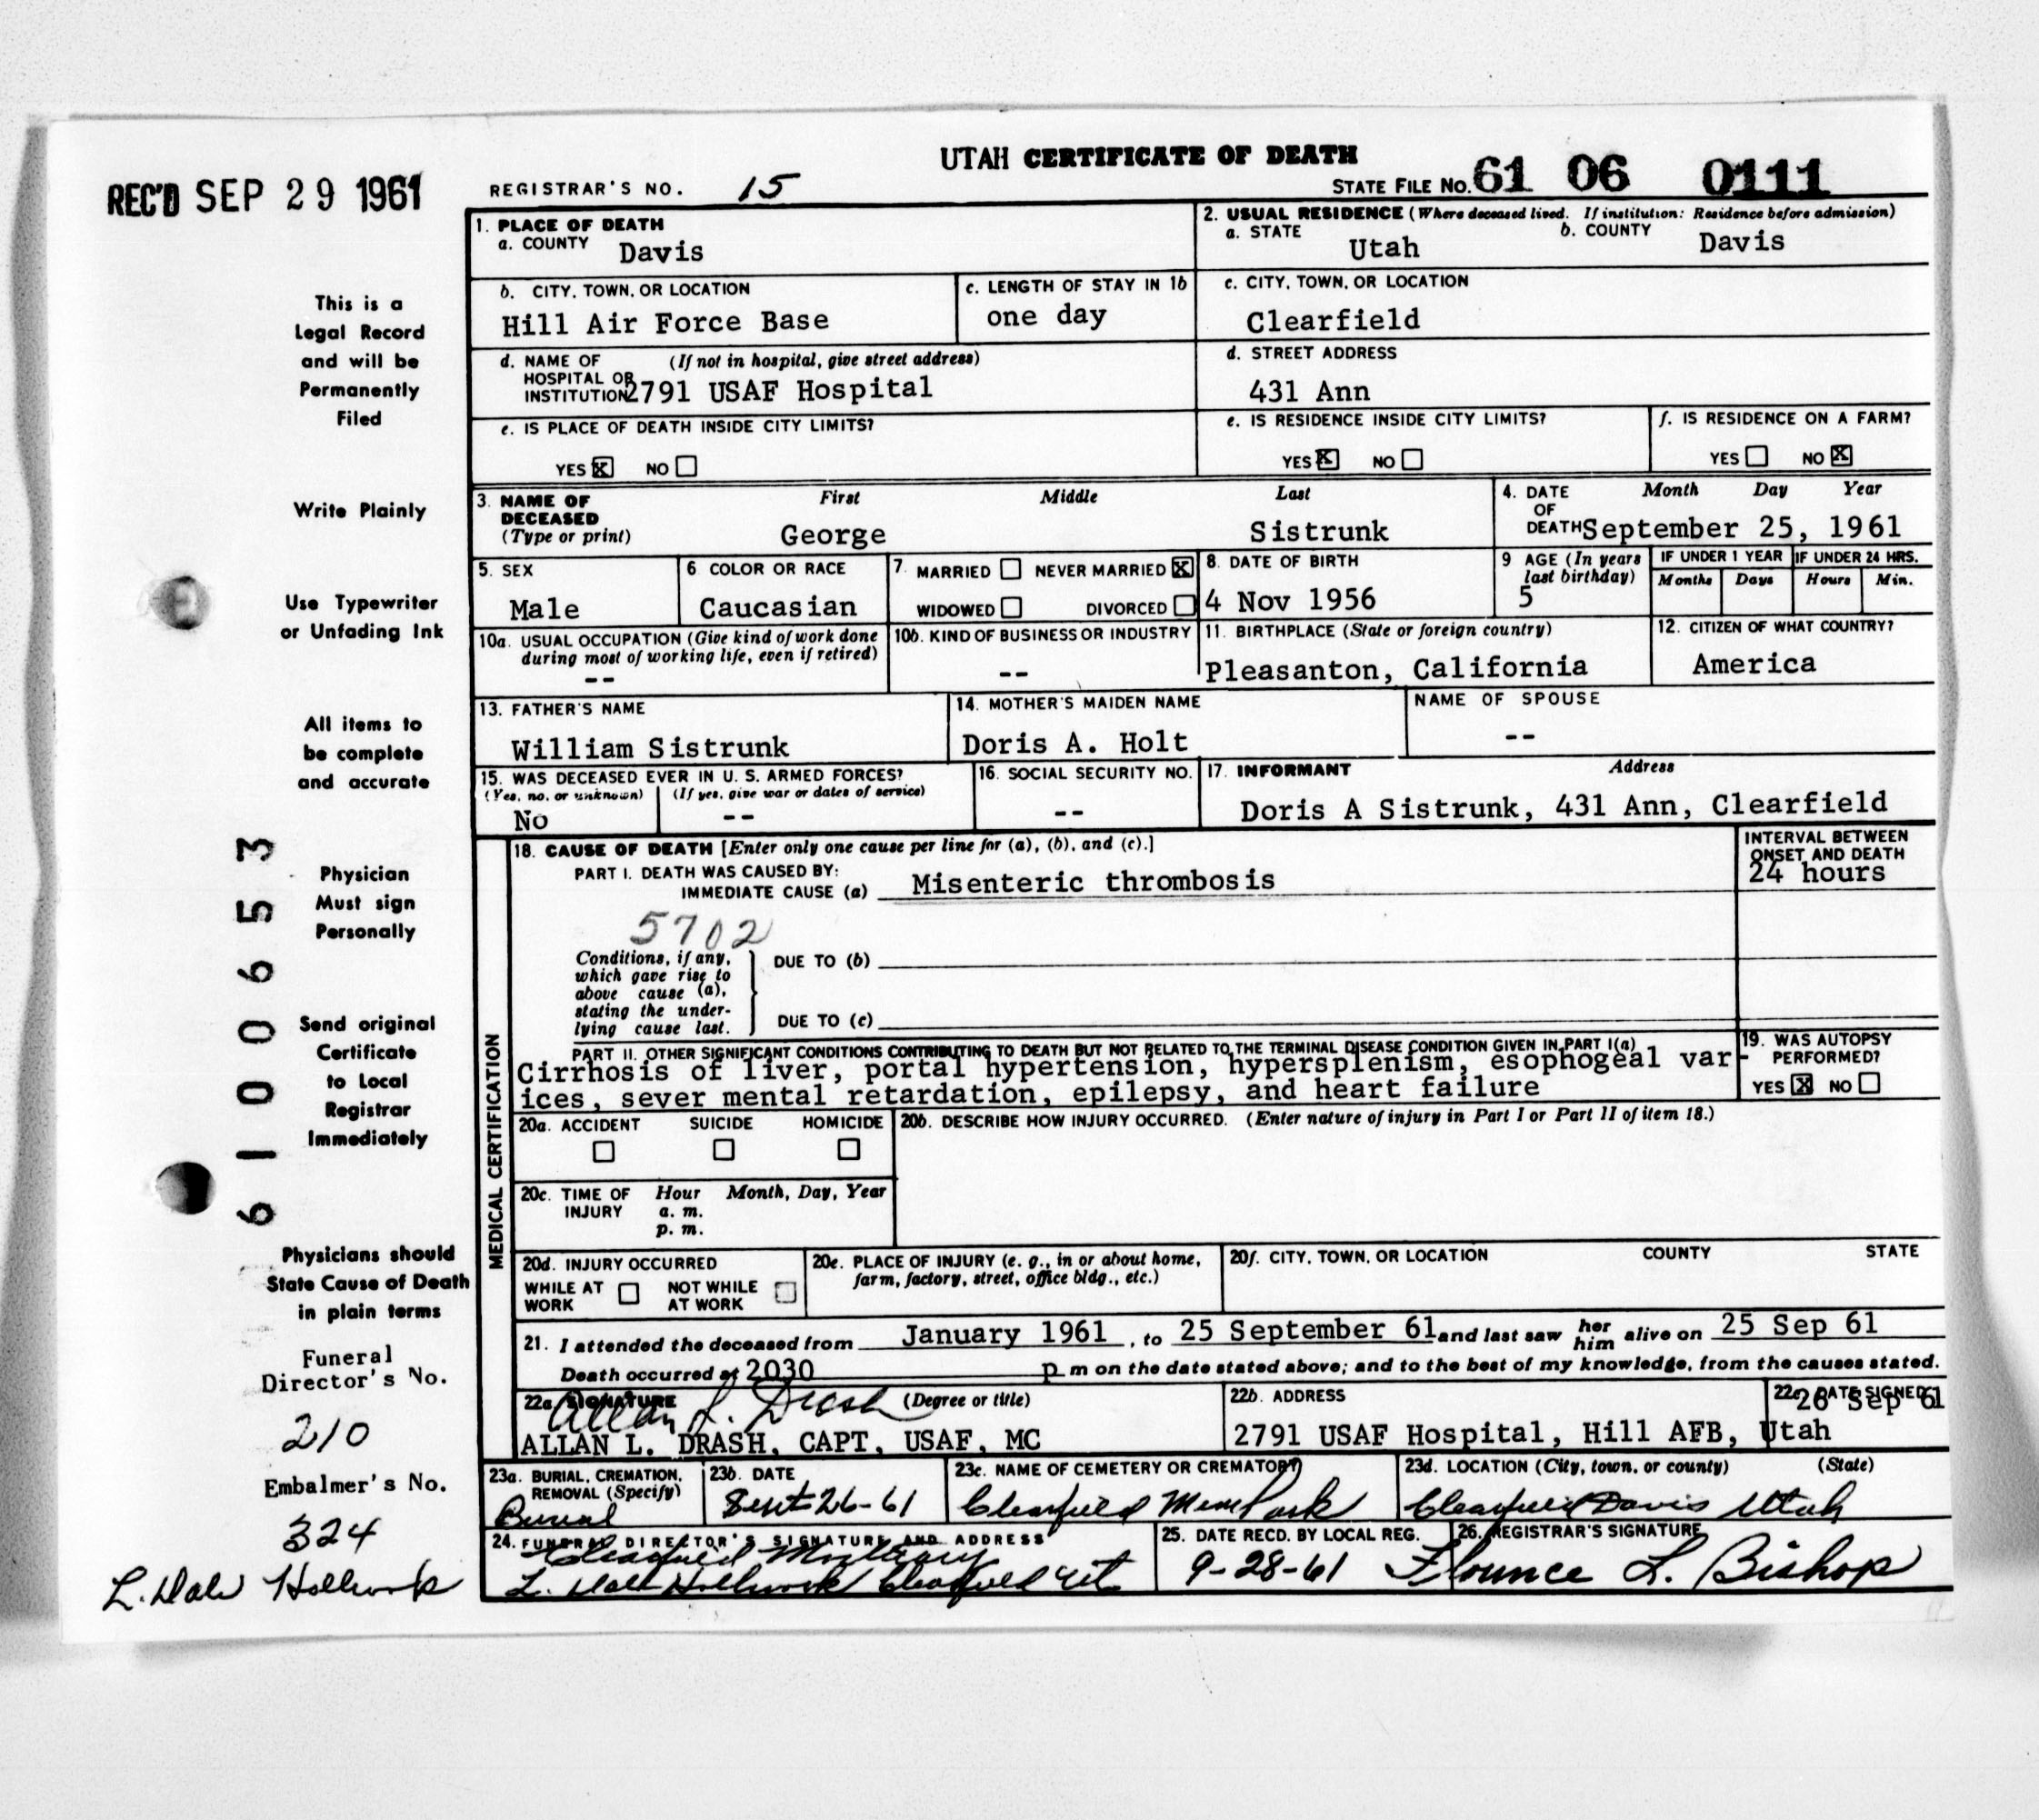 UTAH CERTIFICATE OF DEATH
REC'D SEP 29 1961
REGISTRAR'S NO. 15
STATE FILE NO. 61 06 0111
1. PLACE OF DEATH
a. COUNTY Davis
2. USUAL RESIDENCE (Where deceased lived. If institution: Residence before admission)
a. STATE Utah b. COUNTY Davis
b. CITY, TOWN, OR LOCATION
Hill Air Force Base
c. LENGTH OF STAY IN 1b
one day
c. CITY, TOWN, OR LOCATION
Clearfield
d. NAME OF (If not in hospital, give street address)
HOSPITAL OR
INSTITUTION 2791 USAF Hospital
d. STREET ADDRESS
431 Ann
e. IS PLACE OF DEATH INSIDE CITY LIMITS?
YES X NO
e. IS RESIDENCE INSIDE CITY LIMITS?
YES X NO
f. IS RESIDENCE ON A FARM?
YES NO X
3. NAME OF First Middle Last
DECEASED
(Type or print) George Sistrunk
4. DATE Month Day Year
OF
DEATH September 25, 1961
5. SEX
Male
6 COLOR OR RACE
Caucasian
7. MARRIED NEVER MARRIED X
WIDOWED DIVORCED
8. DATE OF BIRTH
4 Nov 1956
9 AGE (In years
last birthday)
5
IF UNDER 1 YEAR
Months Days
IF UNDER 24 HRS.
Hours Min.
10a. USUAL OCCUPATION (Give kind of work done
during most of working life, even if retired)
--
10b. KIND OF BUSINESS OR INDUSTRY
--
11. BIRTHPLACE (State or foreign country)
Pleasanton, California
12. CITIZEN OF WHAT COUNTRY?
America
13. FATHER'S NAME
William Sistrunk
14. MOTHER'S MAIDEN NAME
Doris A. Holt
NAME OF SPOUSE
--
15. WAS DECEASED EVER IN U. S. ARMED FORCES?
(Yes, no, or unknown) (If yes, give war or dates of service)
No --
16. SOCIAL SECURITY NO.
--
17. INFORMANT Address
Doris A Sistrunk, 431 Ann, Clearfield
MEDICAL CERTIFICATION
18. CAUSE OF DEATH [Enter only one cause per line for (a), (b), and (c).]
PART I. DEATH WAS CAUSED BY:
IMMEDIATE CAUSE (a) Misenteric thrombosis
INTERVAL BETWEEN
ONSET AND DEATH
24 hours
5702
Conditions, if any,
which gave rise to
above cause (a),
stating the under-
lying cause last.
DUE TO (b)
DUE TO (c)
PART II. OTHER SIGNIFICANT CONDITIONS CONTRIBUTING TO DEATH BUT NOT RELATED TO THE TERMINAL DISEASE CONDITION GIVEN IN PART I(a)
Cirrhosis of liver, portal hypertension, hypersplenism, esophogeal var-
ices, sever mental retardation, epilepsy, and heart failure
19. WAS AUTOPSY
PERFORMED?
YES X NO
20a. ACCIDENT SUICIDE HOMICIDE
20b. DESCRIBE HOW INJURY OCCURRED. (Enter nature of injury in Part I or Part II of item 18.)
20c. TIME OF Hour Month, Day, Year
INJURY a. m.
p. m.
20d. INJURY OCCURRED
WHILE AT NOT WHILE
WORK AT WORK
20e. PLACE OF INJURY (e. g., in or about home,
farm, factory, street, office bldg., etc.)
20f. CITY, TOWN, OR LOCATION COUNTY STATE
21. I attended the deceased from January 1961, to 25 September 61 and last saw her him alive on 25 Sep 61
Death occurred at 2030 p m on the date stated above; and to the best of my knowledge, from the causes stated.
22a. SIGNATURE Allan L. Drash (Degree or title)
ALLAN L. DRASH, CAPT, USAF, MC
22b. ADDRESS
2791 USAF Hospital, Hill AFB, Utah
22c. DATE SIGNED
26 Sep 61
23a. BURIAL, CREMATION,
REMOVAL (Specify)
Burial
23b. DATE
Sept 26-61
23c. NAME OF CEMETERY OR CREMATORY
Clearfield Mem Park
23d. LOCATION (City, town, or county) (State)
Clearfield Davis Utah
24. FUNERAL DIRECTOR'S SIGNATURE AND ADDRESS
Clearfield Mortuary
L. Dale Holbrook Clearfield Ut
25. DATE RECD. BY LOCAL REG.
9-28-61
26. REGISTRAR'S SIGNATURE
Flounce L. Bishop
This is a
Legal Record
and will be
Permanently
Filed
Write Plainly
Use Typewriter
or Unfading Ink
All items to
be complete
and accurate
Physician
Must sign
Personally
Send original
Certificate
to Local
Registrar
Immediately
Physicians should
State Cause of Death
in plain terms
Funeral
Director's No.
210
Embalmer's No.
324
L. Dale Holbrook
6100653